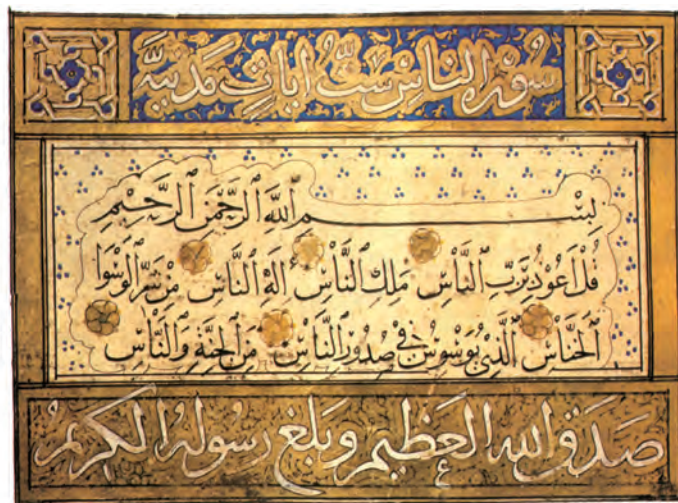 سورة الناس ستّ ايات مدنيّة
بِسْمِ ٱللَّهِ ٱلرَّحْمَنِ ٱلرَّحِيمِ
قُلْ أَعُوذُ بِرَبِّ ٱلنَّاسِ مَلِكِ ٱلنَّاسِ إِلَهِ ٱلنَّاسِ مِنْ شَرِّ ٱلْوَسْوَا
ٱلْخَنَّاسِ ٱلَّذِي يُوَسْوِسُ فِي صُدُورِ ٱلنَّاسِ مِنَ ٱلْجِنَّةِ وَٱلنَّاسِ
صَدَقَ اللهُ العَظِيمُ وَبَلَّغَ رَسُولُهُ الكَرِيمُ